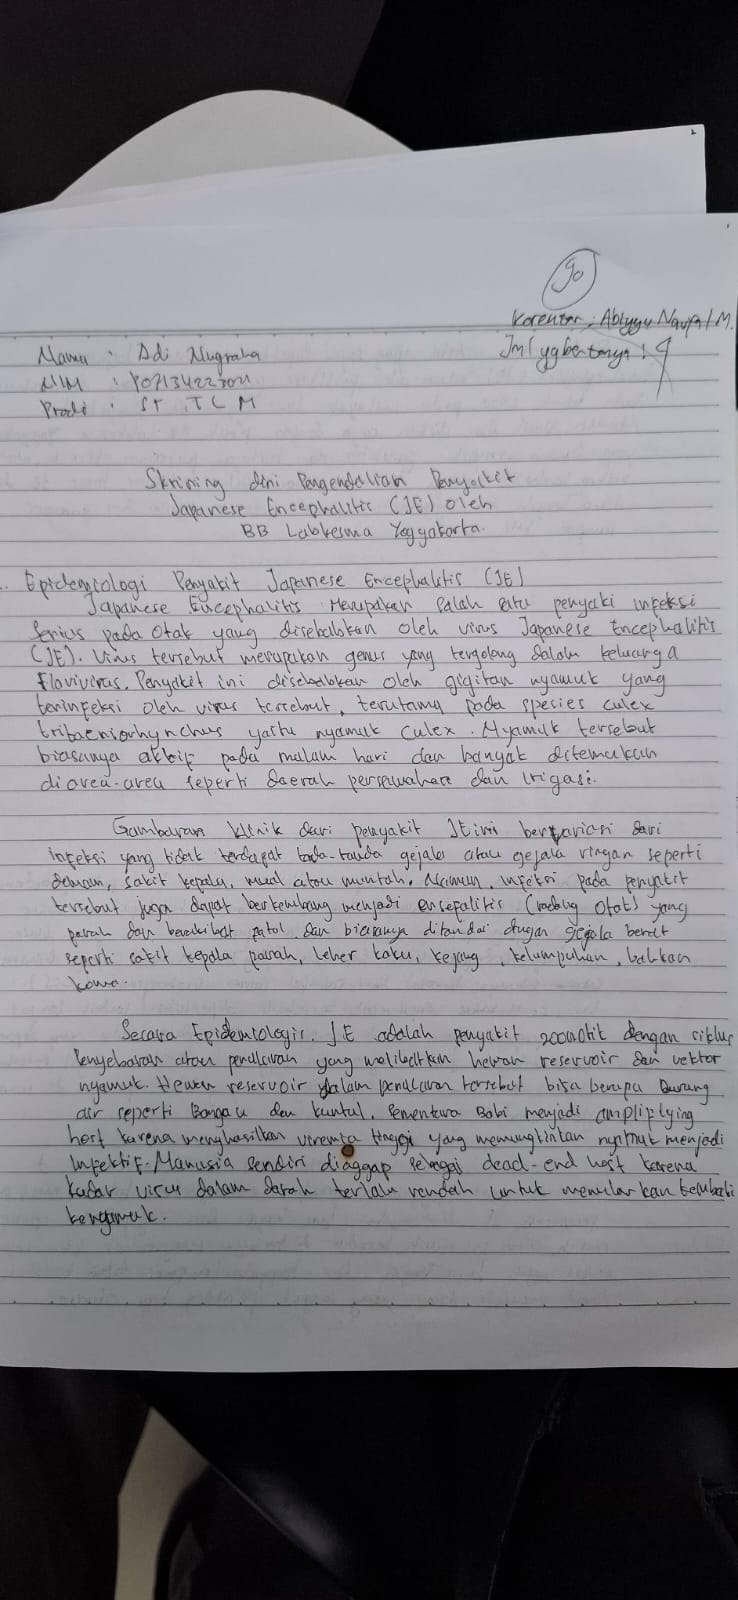 2
1
90
Korektor : Abiyyu Naufal M.
Jml yg bertanya : 9
Nama : Adi Nugraha
NIM : P07134223021
Prodi : ST. TLM
Skrining dini Pengendalian Penyakit
Japanese Encephalitis (JE) oleh
BB Labkesma Yogyakarta.
Epidemiologi Penyakit Japanese Encephalitis (JE)
Japanese Encephalitis Merupakan Salah satu penyaki infeksi
serius pada otak yang disebabkan oleh virus Japanese Encephalitis
(JE). Virus tersebut merupakan genus yang tergolong dalam keluarga
flavivirus. Penyakit ini disebabkan oleh gigitan nyamuk yang
terinfeksi oleh virus tersebut, terutama pada species culex
tritaeniorhynchus yaitu nyamuk culex. Nyamuk tersebut
biasanya aktif pada malam hari dan banyak ditemukan
diarea-area seperti daerah persawahan dan irigasi.
Gambaran klinik dari penyakit JE ini bervariasi dari
infeksi yang tidak terdapat tanda-tanda gejala atau gejala ringan seperti
demam, sakit kepala, mual atau muntah. Namun, infeksi pada penyakit
tersebut juga dapat berkembang menjadi encefalitis (radang otak) yang
parah dan berakibat fatal dan biasanya ditandai dengan gejala berat
seperti sakit kepala parah, leher kaku, kejang, kelumpuhan, bahkan
koma.
Secara Epidemiologis, JE adalah penyakit zoonotik dengan siklus
Penyebaran atau penularan yang melibatkan hewan reservoir dan vektor
nyamuk. Hewan reservoir dalam penularan tersebut bisa berupa burung
air seperti Bangau dan kuntul. Sementara Babi menjadi amplifying
host karena menghasilkan viremia tinggi yang memungkinkan nyamuk menjadi
infektif. Manusia sendiri diaggap sebagai dead-end host karena
kadar virus dalam darah terlalu rendah untuk menularkan kembali
kenyamuk.